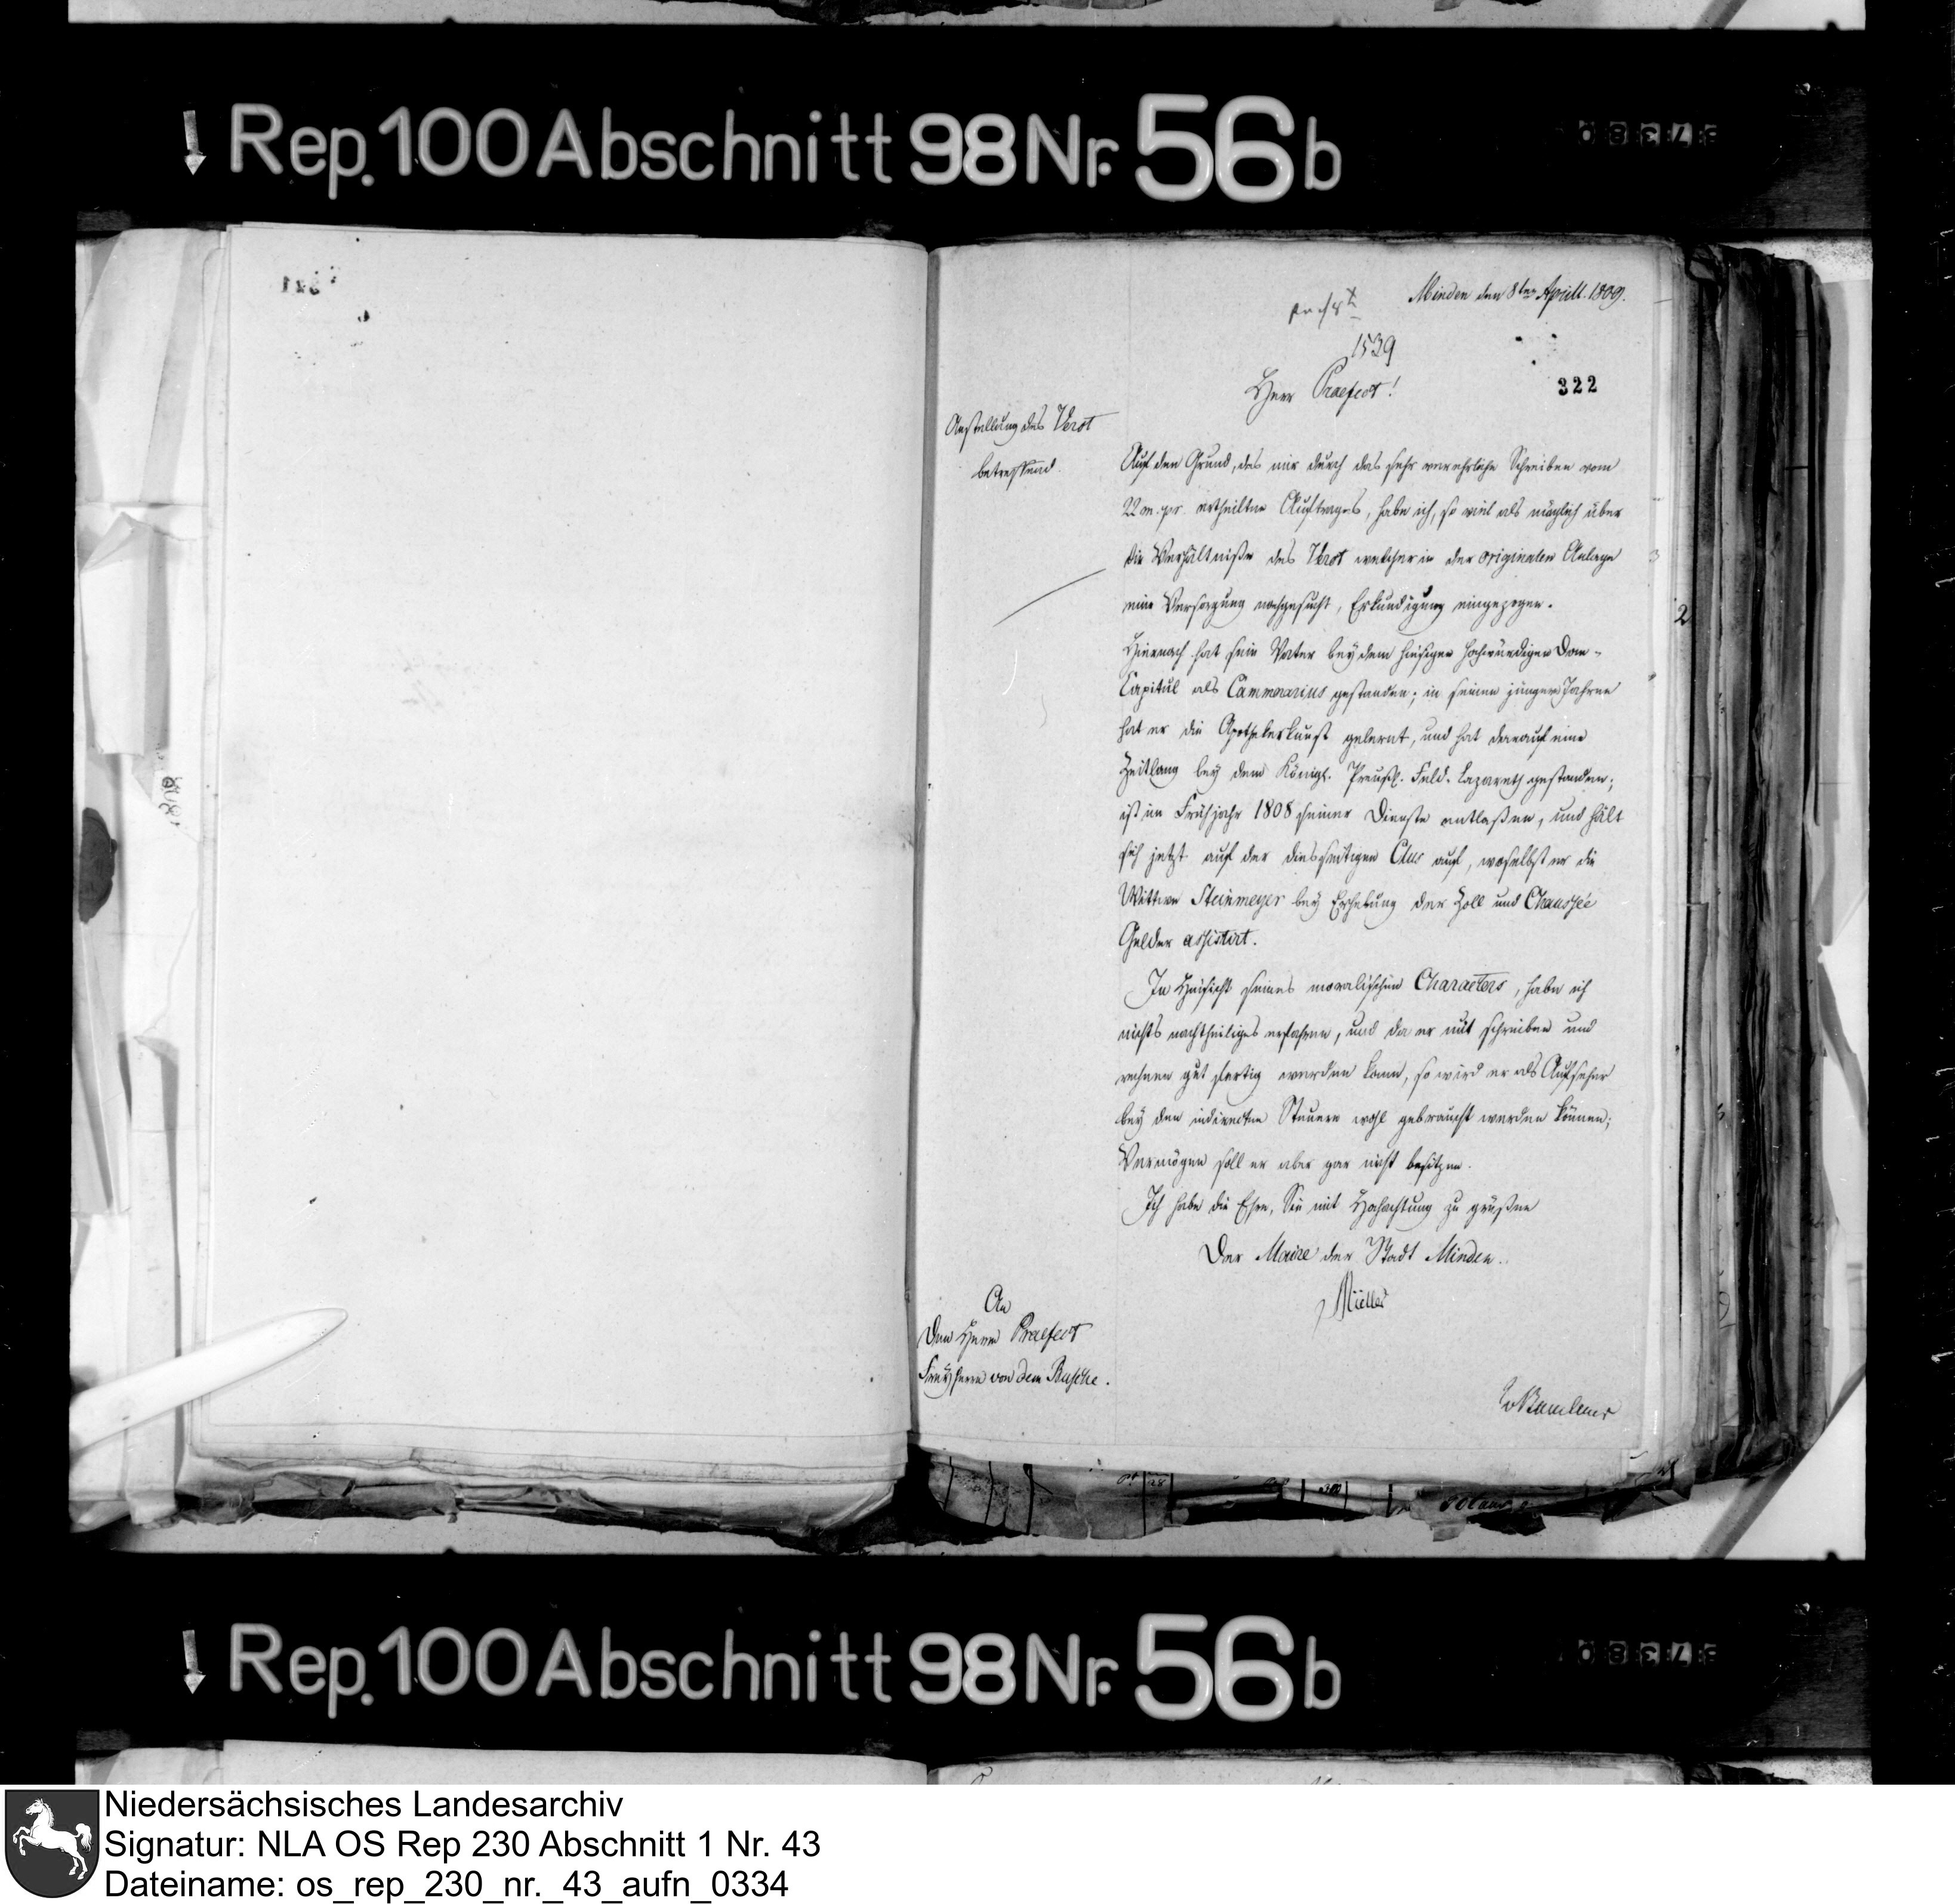 Rep. 100 Abschnitt 98 Nr. 56 b
Minden den 8ten Aprill. 1809.
1539
Herr Praefect!
322
Anstellung des Verot
betreffend.
Auf den Grund, des mir durch das sehr verehrliche Schreiben vom
22 m. pr. ertheilten Auftrages, habe ich, so viel als möglich über
die Verhältniße des Verot welcher in der originalen Anlage
eine Versorgung nachgesucht, Erkundigung eingezogen.
Hiernach hat sein Vater bey dem hiesigen hochwürdigen Dom-
Capitul als Cammerarius gestanden; in seinen jüngern Jahren
hat er die Apothekerkunst gelernt, und hat darauf eine
Zeitlang bey dem Königl. Preuß. Feld-Lazareth gestanden;
ist im Frühjahr 1808 seiner Dienste entlaßen, und hält
sich jetzt auf der diesseitigen Clus auf, woselbst er die
Wittwe Steinmeyer bey Erhebung der Zoll und Chaussée
Gelder assistirt.
In Hinsicht seines moralischen Characters, habe ich
nichts nachtheiliges erfahren, und da er mit schreiben und
rechnen gut fertig werden kann, so wird er als Aufseher
bey den indirecten Steuern wohl gebraucht werden können;
Vermögen soll er aber gar nicht besitzen.
Ich habe die Ehre, Sie mit Hochachtung zu grüßen
Der Maire der Stadt Minden.
Müller
An
Den Herrn Praefect
Freyherrn von dem Busche.
Rep. 100 Abschnitt 98 Nr. 56 b
Niedersächsisches Landesarchiv
Signatur: NLA OS Rep 230 Abschnitt 1 Nr. 43
Dateiname: os_rep_230_nr._43_aufn_0334